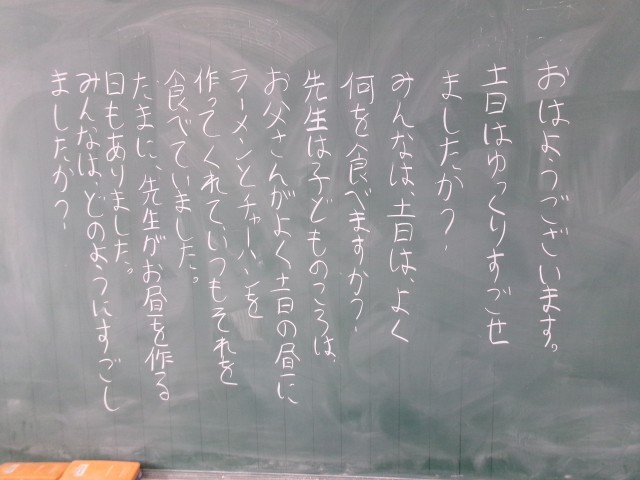 おはようございます。
土日はゆっくりすごせ
ましたか？
みんなは、土日は、よく
何を食べますか？
先生は子どものころは、
お父さんがよく土日の昼に
ラーメンとチャーハンを
作ってくれて、いつもそれを
食べていました。
たまに、先生がお昼を作る
日もありました。
みんなは、どのようにすごし
ましたか？